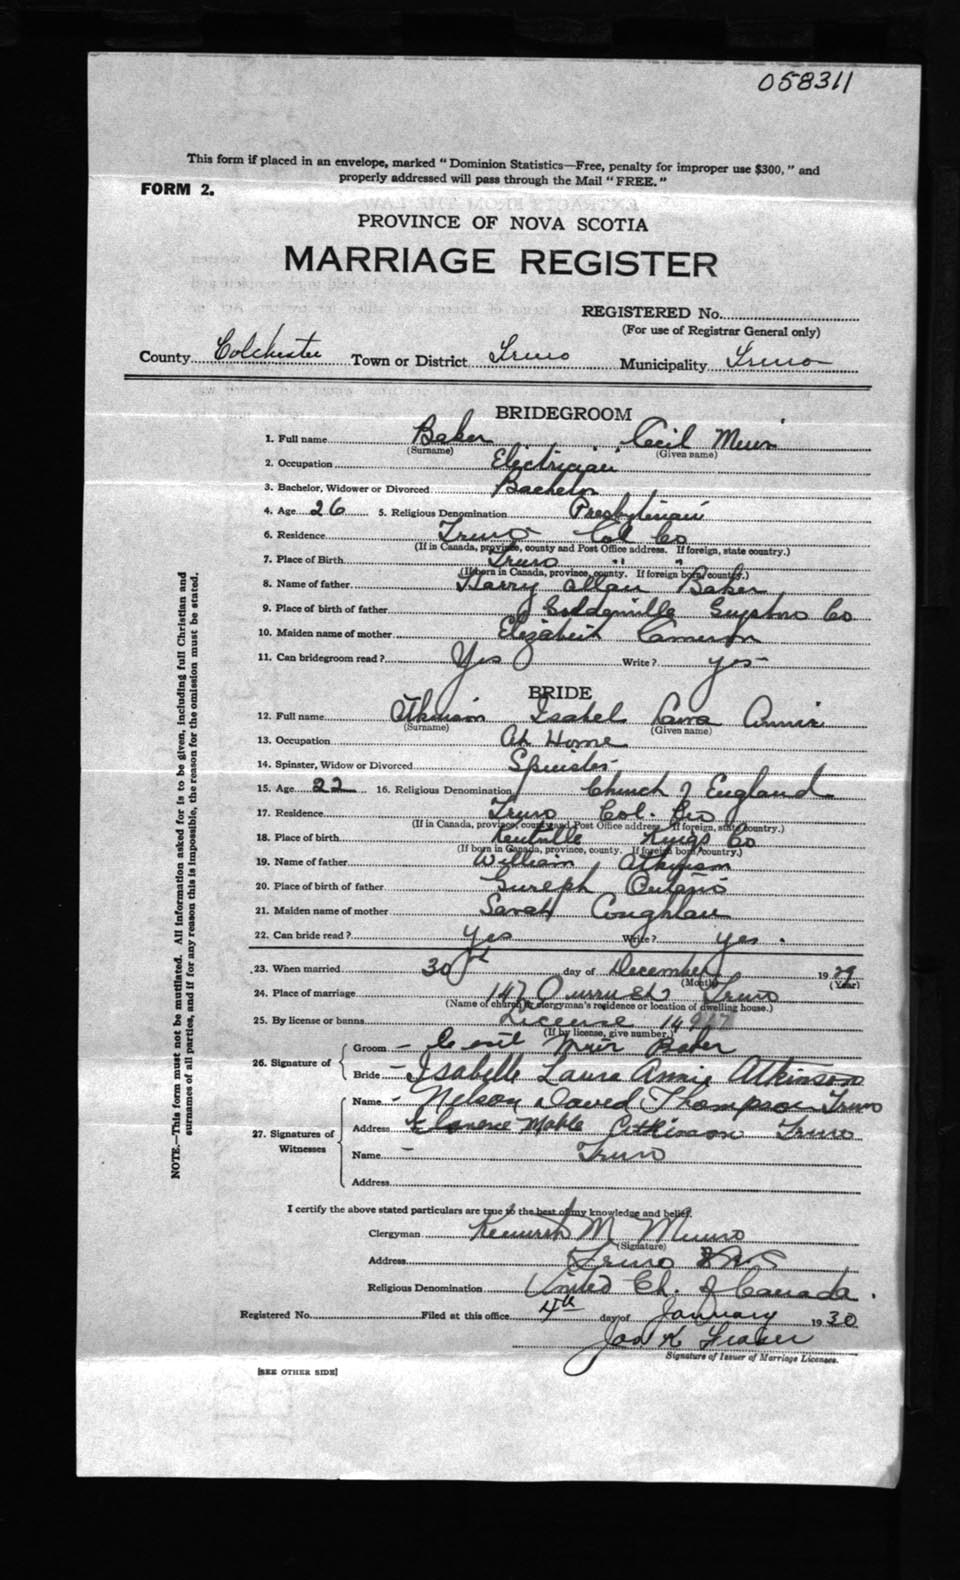 058311
This form if placed in an envelope, marked "Dominion Statistics—Free, penalty for improper use $300," and
properly addressed will pass through the Mail "FREE."
FORM 2.
PROVINCE OF NOVA SCOTIA
MARRIAGE REGISTER
REGISTERED No.
(For use of Registrar General only)
County Colchester Town or District Truro Municipality Truro
BRIDEGROOM
1. Full name Baker Cecil Muir
(Surname) (Given name)
2. Occupation Electrician
3. Bachelor, Widower or Divorced Bachelor
4. Age 26 5. Religious Denomination Presbyterian
6. Residence Truro Col Co
(If in Canada, province, county and Post Office address. If foreign, state country.)
7. Place of Birth Truro " "
(If born in Canada, province, county. If foreign born, country.)
8. Name of father Harry Allan Baker
9. Place of birth of father Goldenville Guysboro Co
10. Maiden name of mother Elizabeth Cameron
11. Can bridegroom read? Yes Write? yes
BRIDE
12. Full name Atkinson Isabel Laura Annie
(Surname) (Given name)
13. Occupation At Home
14. Spinster, Widow or Divorced Spinster
15. Age 22 16. Religious Denomination Church of England
17. Residence Truro Col. Co
(If in Canada, province, county and Post Office address. If foreign, state country.)
18. Place of birth Kentville Kings Co
(If born in Canada, province, county. If foreign born, country.)
19. Name of father William Atkinson
20. Place of birth of father Guelph Ontario
21. Maiden name of mother Sarah Coughlan
22. Can bride read? yes Write? yes.
23. When married 30th day of December 1929
(Month) (Year)
24. Place of marriage 147 Truro
(Name of church, clergyman's residence or location of dwelling house.)
25. By license or banns License
(If by license, give number.)
26. Signature of
Groom - Cecil Muir Baker
Bride - Isabelle Laura Annie Atkinson
27. Signatures of Witnesses
Name - Nelson David Thompson Truro
Address Florence Mable Atkinson Truro
Name - Truro
Address
I certify the above stated particulars are true to the best of my knowledge and belief.
Clergyman Kenneth M Munro
(Signature)
Address Truro N S
Religious Denomination United Ch. of Canada.
Registered No. Filed at this office 4th day of January 1930
Jas K Fraser
Signature of Issuer of Marriage Licenses.
[SEE OTHER SIDE]
NOTE.—This form must not be mutilated. All information asked for is to be given, including full Christian and
surnames of all parties, and if for any reason this is impossible, the reason for the omission must be stated.